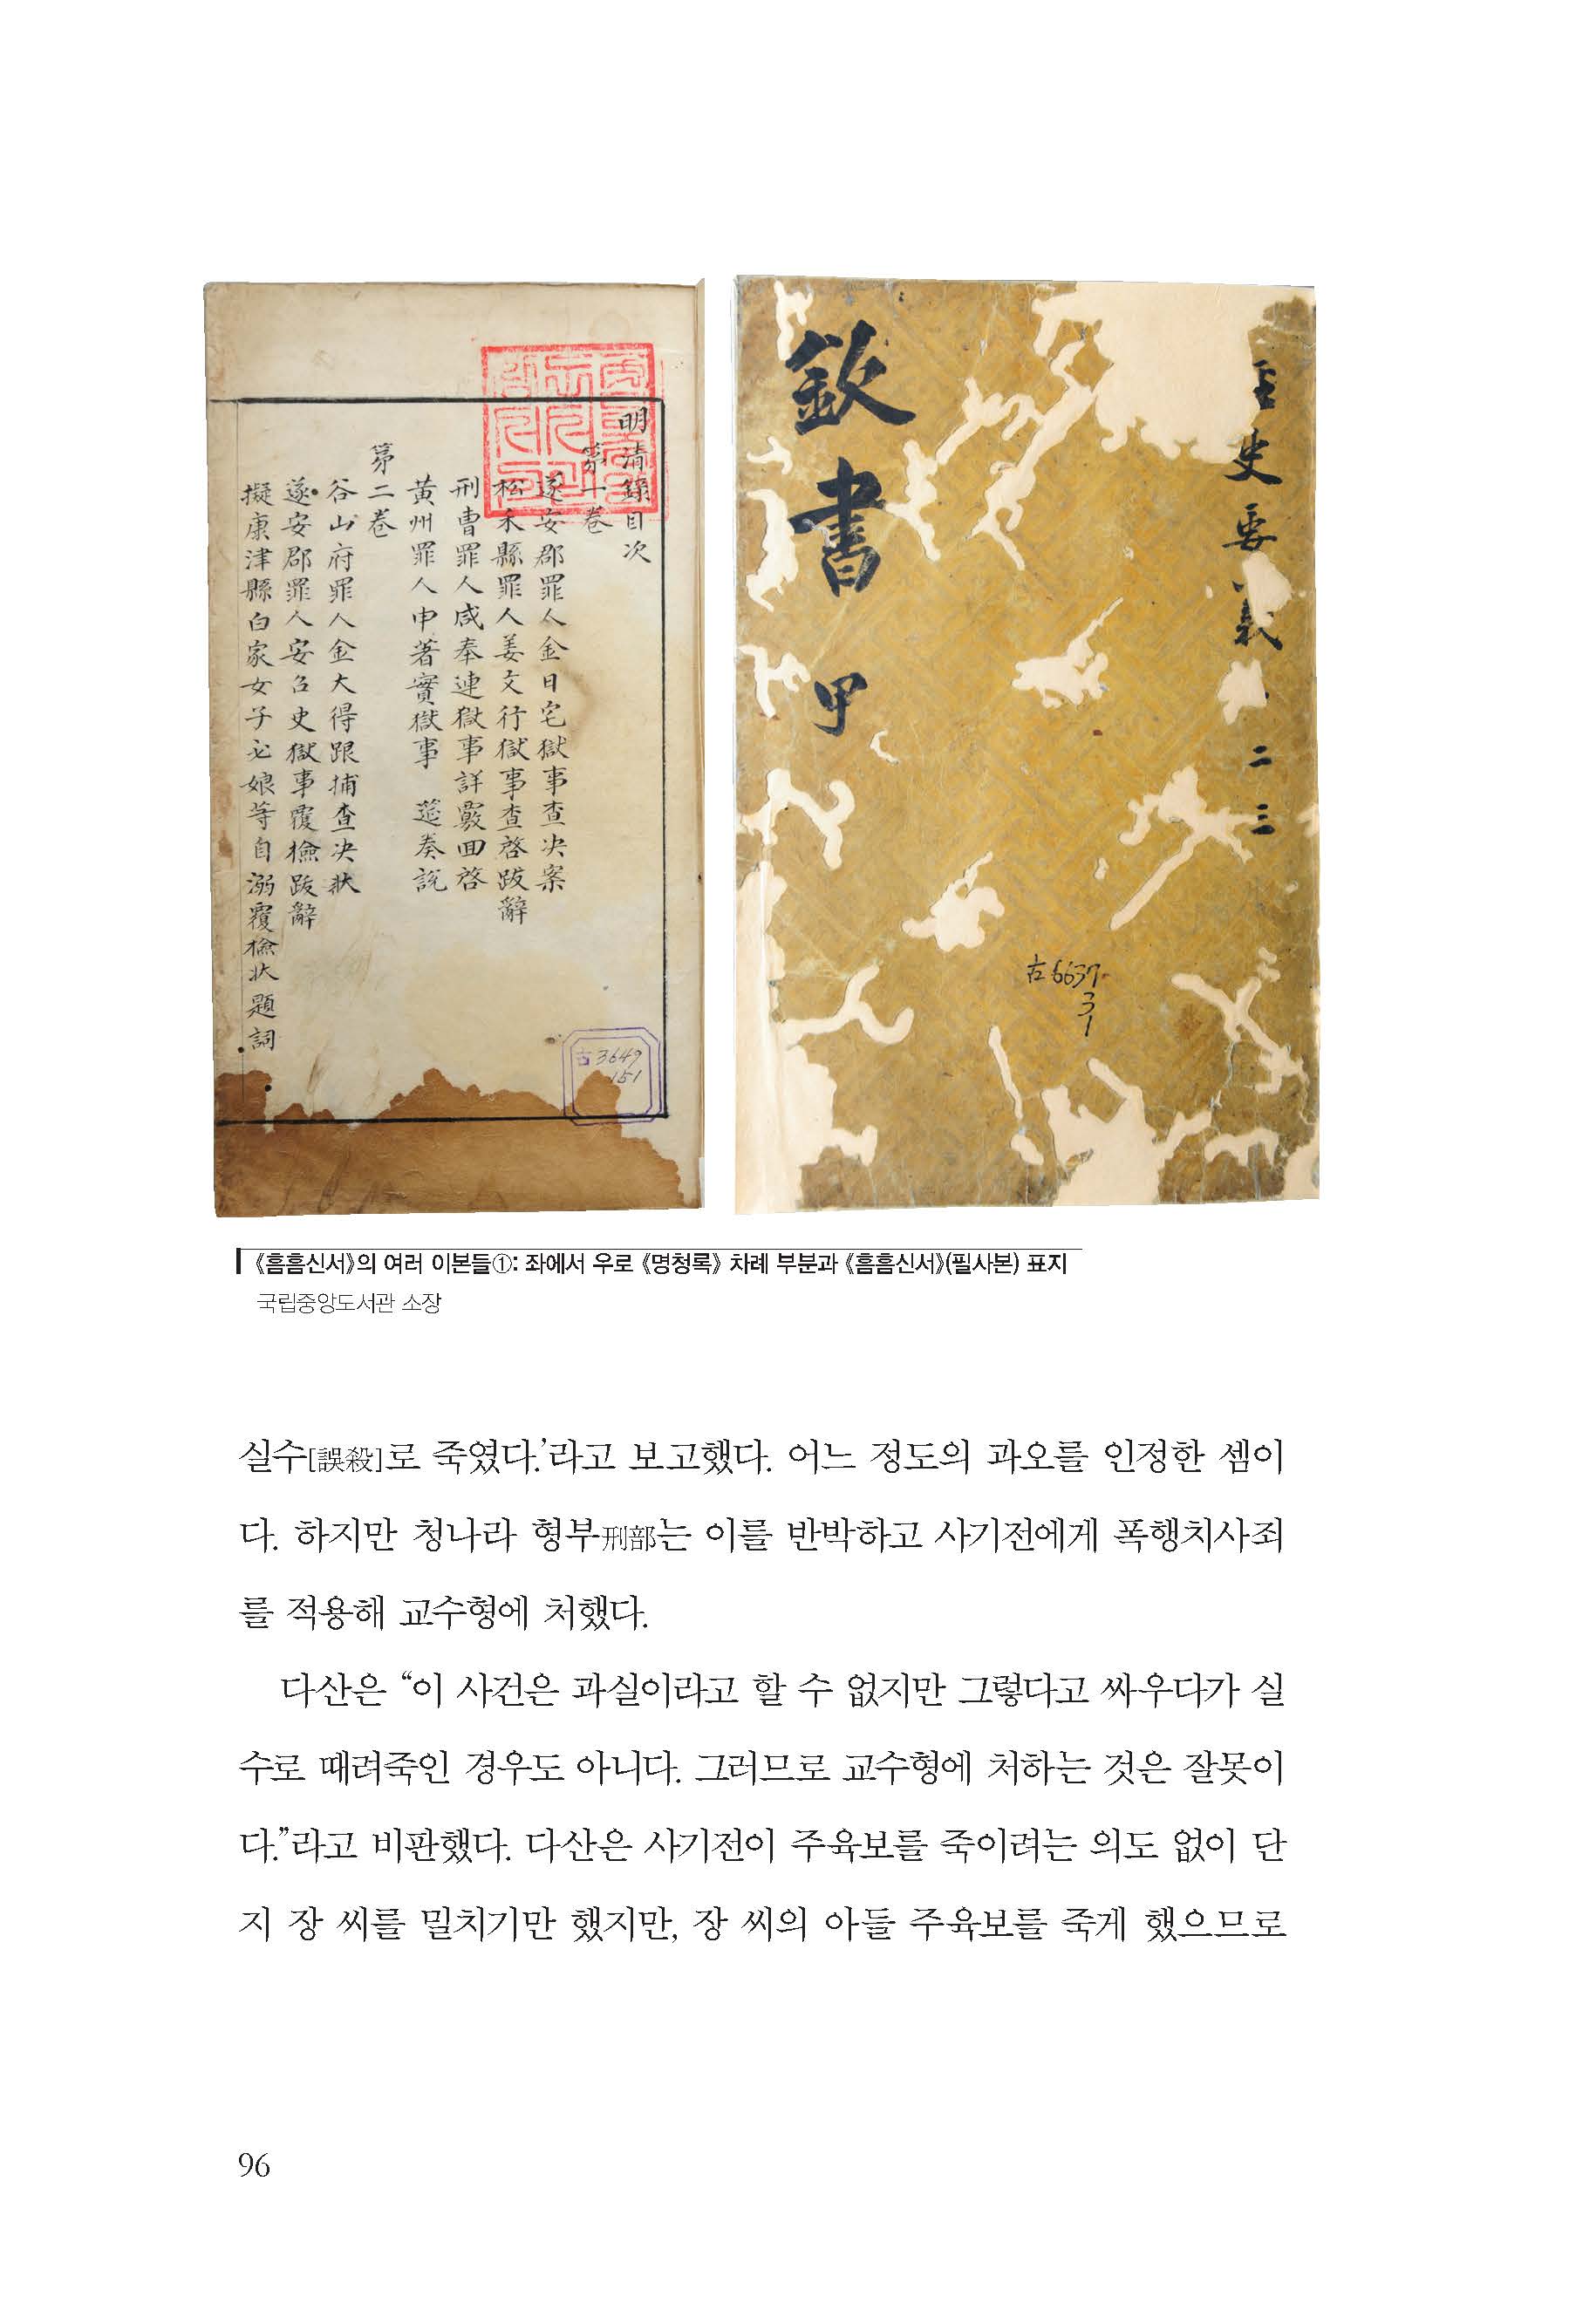 明淸錄目次
第一卷
遂安郡罪人金日宅獄事查决案
松禾縣罪人姜文行獄事查啓跋辭
刑曹罪人咸奉連獄事詳覈回啓
黃州罪人申著實獄事 筵奏說
第二卷
谷山府罪人金大得跟捕查决狀
遂安郡罪人安召史獄事覆檢跋辭
擬康津縣白家女子必娘等自溺覆檢狀題詞
古3649
151
史要義
二
三
欽書 甲
古6637
3
1
《흠흠신서》의 여러 이본들①: 좌에서 우로 《명청록》 차례 부분과 《흠흠신서》(필사본) 표지
국립중앙도서관 소장
실수[誤殺]로 죽였다.’라고 보고했다. 어느 정도의 과오를 인정한 셈이
다. 하지만 청나라 형부刑部는 이를 반박하고 사기전에게 폭행치사죄
를 적용해 교수형에 처했다.
다산은 “이 사건은 과실이라고 할 수 없지만 그렇다고 싸우다가 실
수로 때려죽인 경우도 아니다. 그러므로 교수형에 처하는 것은 잘못이
다.”라고 비판했다. 다산은 사기전이 주육보를 죽이려는 의도 없이 단
지 장 씨를 밀치기만 했지만, 장 씨의 아들 주육보를 죽게 했으므로
96